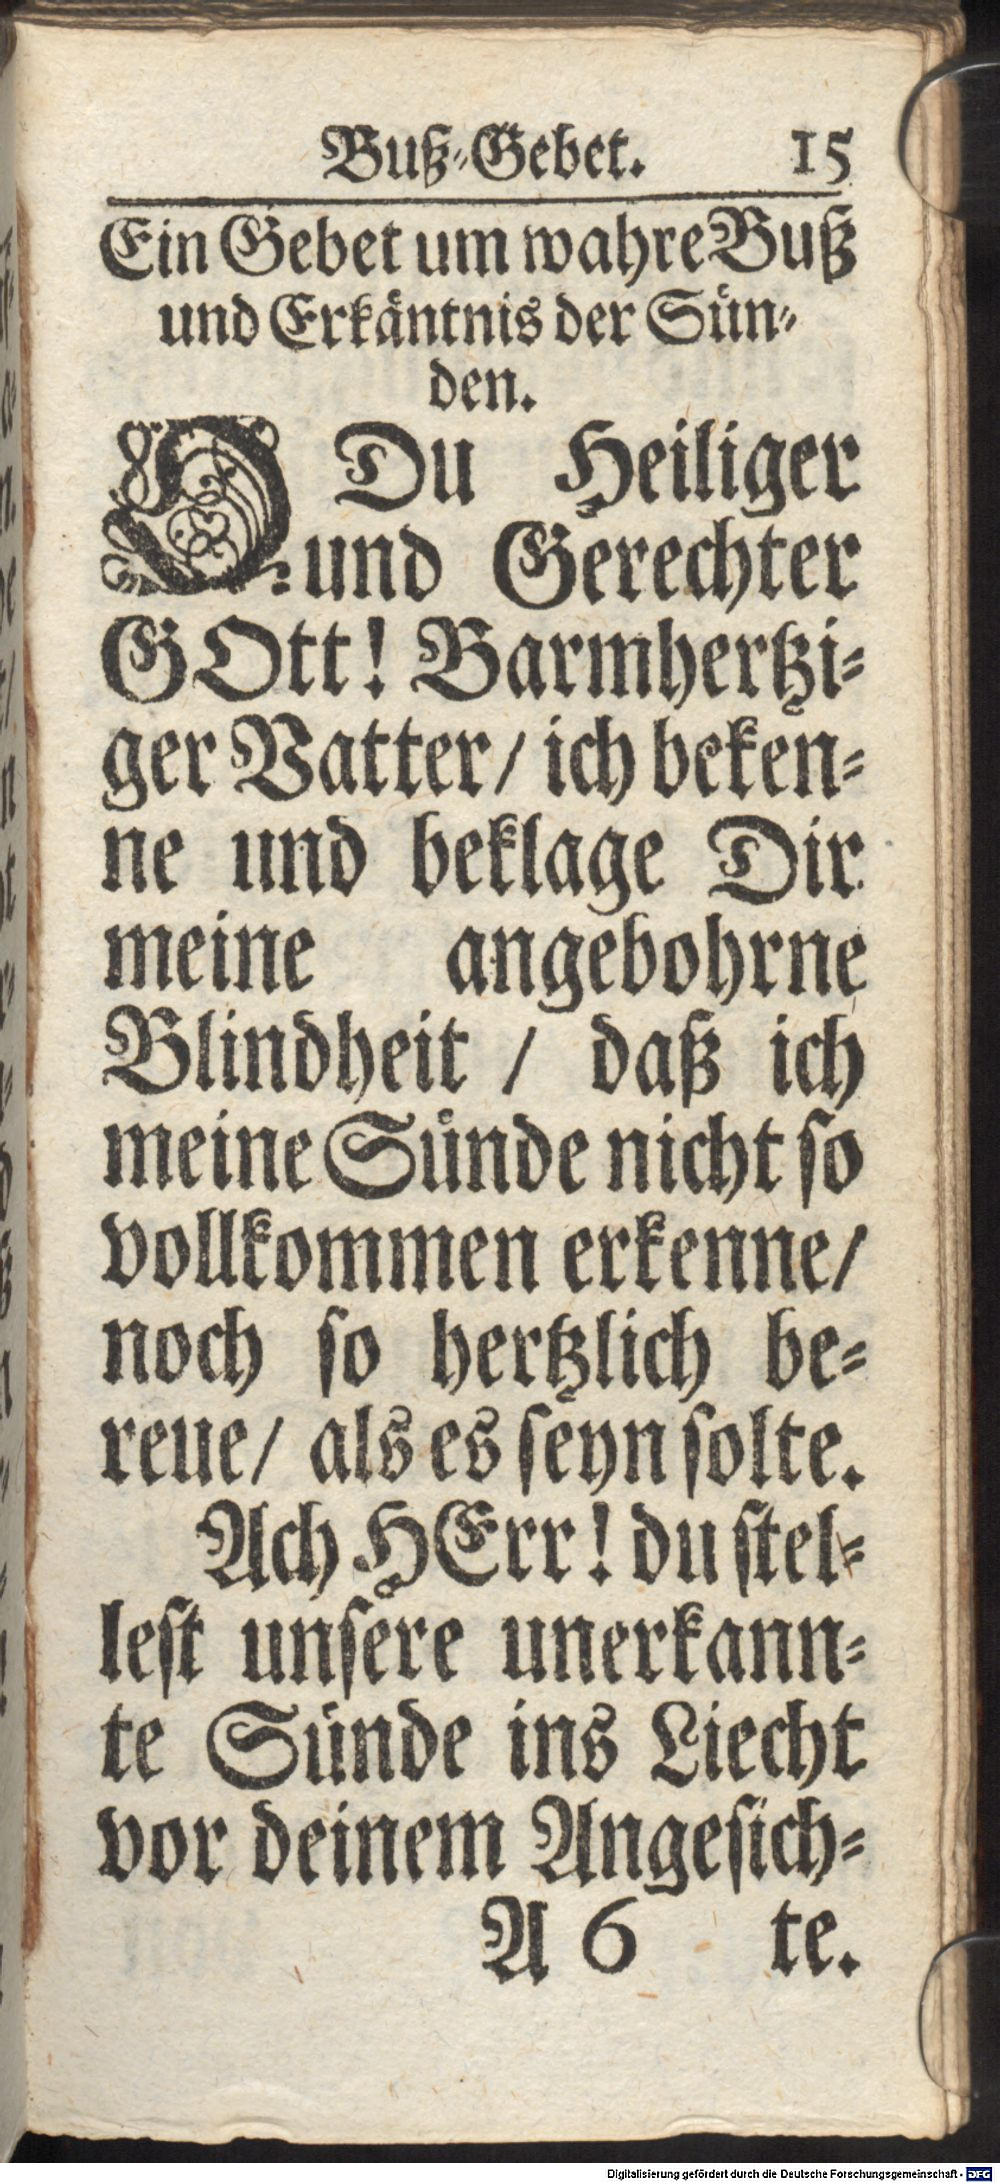 Buß-Gebet. 15
Ein Gebet um wahre Buß
und Erkäntnis der Sün-
den.
O Du Heiliger
und Gerechter
GOtt! Barmhertzi-
ger Vatter/ ich beken-
ne und beklage Dir
meine angebohrne
Blindheit / daß ich
meine Sünde nicht so
vollkommen erkenne/
noch so hertzlich be-
reue/ als es seyn solte.
Ach HErr! du stel-
lest unsere unerkann-
te Sünde ins Liecht
vor deinem Angesich-
A 6 te.
Digitalisierung gefördert durch die Deutsche Forschungsgemeinschaft - DFG